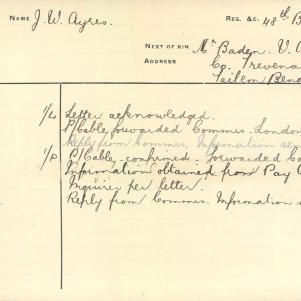 NAME J. W. Ayres. REG. &C. 48th B
NEXT OF KIN Mr Baden. V. A
ADDRESS Co. Trevena
Tailem Bend
1/4 Letter acknowledged.
P/Cable forwarded Commis. London
Reply from Commis. Information
1/5 P/Cable confirmed. Forwarded Co
Information obtained from Pay
Inquirer per letter.
Reply from Commis. Information s